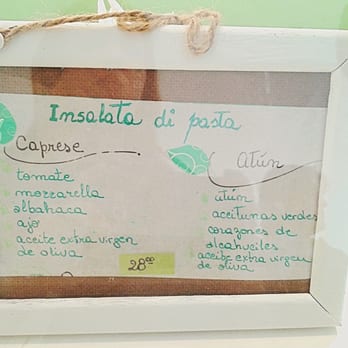 Insalata di pasta
Caprese
tomate
mozzarella
albahaca
ajo
aceite extra virgen
de oliva
2800
atún
atún
aceitunas verdes
corazones de
alcahuciles
aceite extra virgen
de oliva